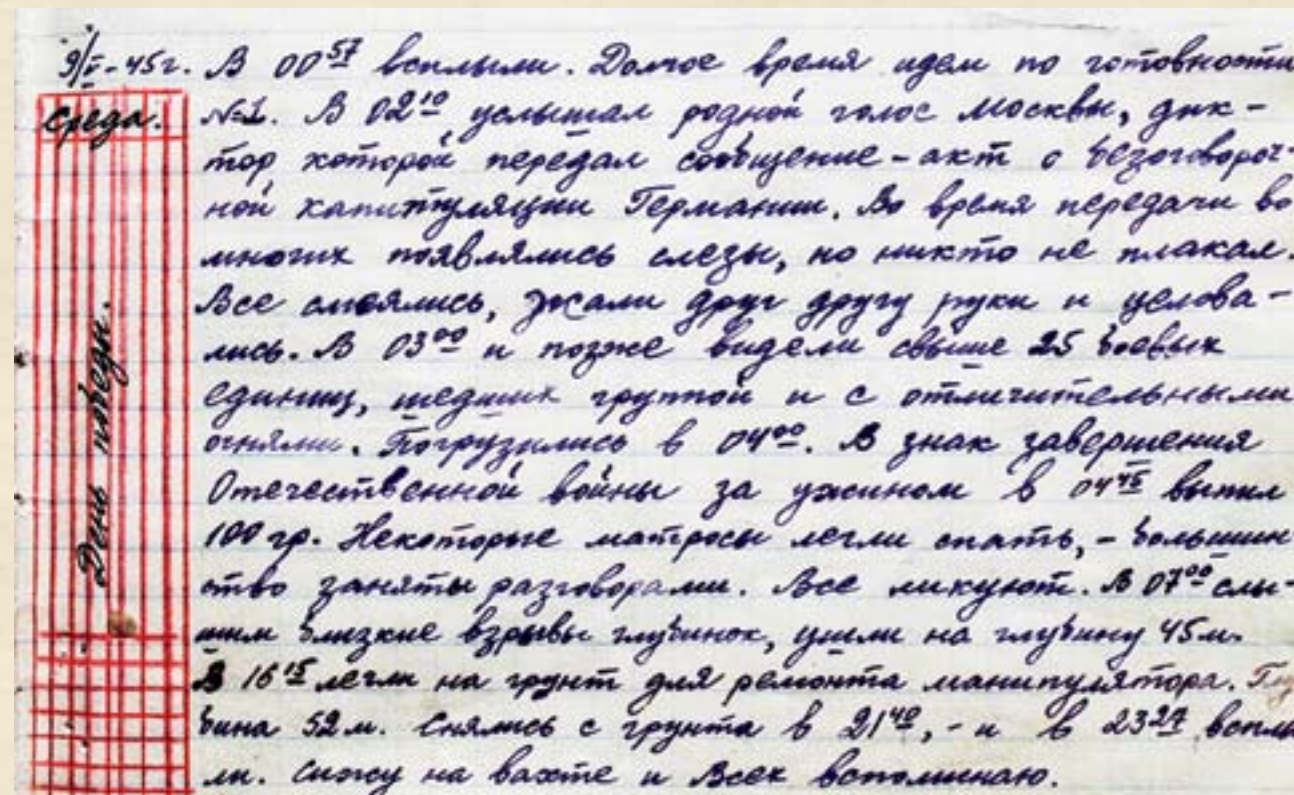 9/V-45г. В 00 57 всплыли. Долгое время идем по готовности
Среда. №1. В 02 10 услышал родной голос Москвы, дик-
тор которой передал сообщение - акт о безоговороч-
ной капитуляции Германии. Во время передачи во
многих появлялись слезы, но никто не плакал.
Все смеялись, жали друг другу руки и целова-
лись. В 03 00 и позже видели свыше 25 боевых
единиц, шедших группой и с отличительными
огнями. Погрузились в 04 00. В знак завершения
Отечественной войны за ужином в 04 45 выпил
100 гр. Некоторые матросы легли спать, - большин
ство заняты разговорами. Все ликуют. В 07 00 слы-
шим близкие взрывы глубинок, ушли на глубину 45 м.
В 16 15 легли на грунт для ремонта манипулятора. Глу
бина 52 м. Снялись с грунта в 21 40, - и в 23 27 всплы
ли. Сижу на вахте и Всех вспоминаю.
День победы.